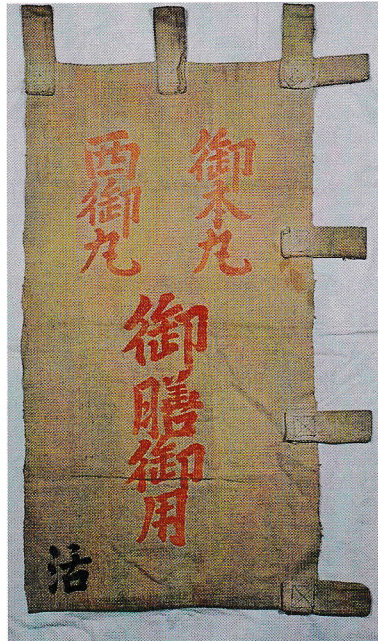 御本丸
西御丸
御膳御用
活